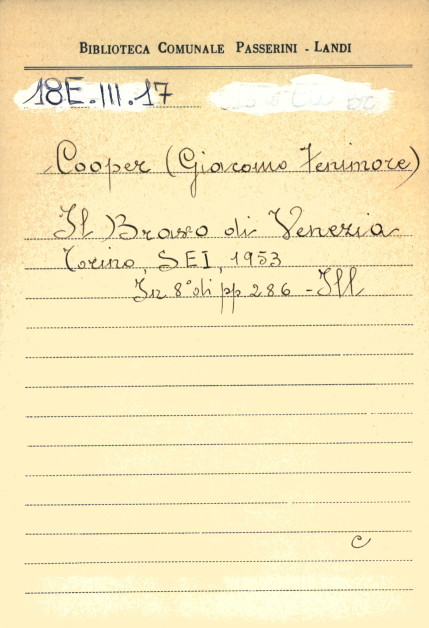 BIBLIOTECA COMUNALE PASSERINI - LANDI
18E.III.17
Cooper (Giacomo Fenimore)
Il Bravo di Venezia
Torino, SEI, 1953
In 8° di pp 286 - Ill
c